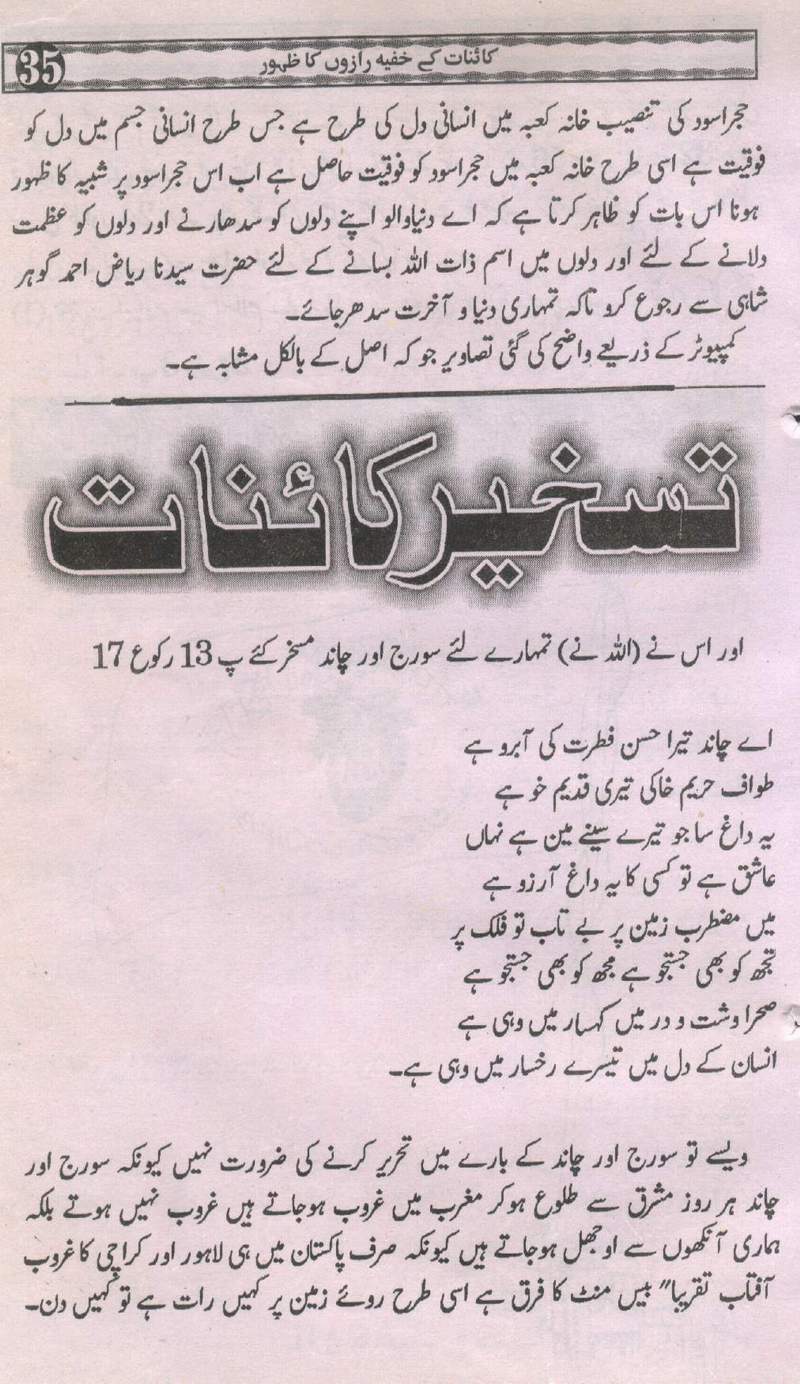 35
کائنات کے خفیہ رازوں کا ظہور
حجراسود کی تنصیب خانہ کعبہ میں انسانی دل کی طرح ہے جس طرح انسانی جسم میں دل کو
فوقیت ہے اسی طرح خانہ کعبہ میں حجراسود کو فوقیت حاصل ہے اب اس حجراسود پر شبیہ کا ظہور
ہونا اس بات کو ظاہر کرتا ہے کہ اے دنیاوالو اپنے دلوں کو سدھارنے اور دلوں کو عظمت
دلانے کے لئے اور دلوں میں اسم ذات اللہ بسانے کے لئے حضرت سیدنا ریاض احمد گوہر
شاہی سے رجوع کرو تاکہ تمہاری دنیا و آخرت سدھرجائے۔
کمپیوٹر کے ذریعے واضح کی گئی تصاویر جو کہ اصل کے بالکل مشابہ ہے۔
تسخیر کائنات
اور اس نے (اللہ نے) تمہارے لئے سورج اور چاند مسخر کئے پ 13 رکوع 17
اے چاند تیرا حسن فطرت کی آبرو ہے
طواف حریم خاکی تیری قدیم خو ہے
یہ داغ سا جو تیرے سینے مین ہے نہاں
عاشق ہے تو کسی کا یہ داغ آرزو ہے
میں مضطرب زمین پر بے تاب تو فلک پر
تجھ کو بھی جستجو ہے مجھ کو بھی جستجو ہے
صحرا وشت و در میں کہسار میں وہی ہے
انسان کے دل میں تیسرے رخسار میں وہی ہے۔
ویسے تو سورج اور چاند کے بارے میں تحریر کرنے کی ضرورت نہیں کیونکہ سورج اور
چاند ہر روز مشرق سے طلوع ہوکر مغرب میں غروب ہوجاتے ہیں غروب نہیں ہوتے بلکہ
ہماری آنکھوں سے اوجھل ہوجاتے ہیں کیونکہ صرف پاکستان میں ہی لاہور اور کراچی کا غروب
آفتاب تقریبا" بیس منٹ کا فرق ہے اسی طرح روئے زمین پر کہیں رات ہے تو کہیں دن۔